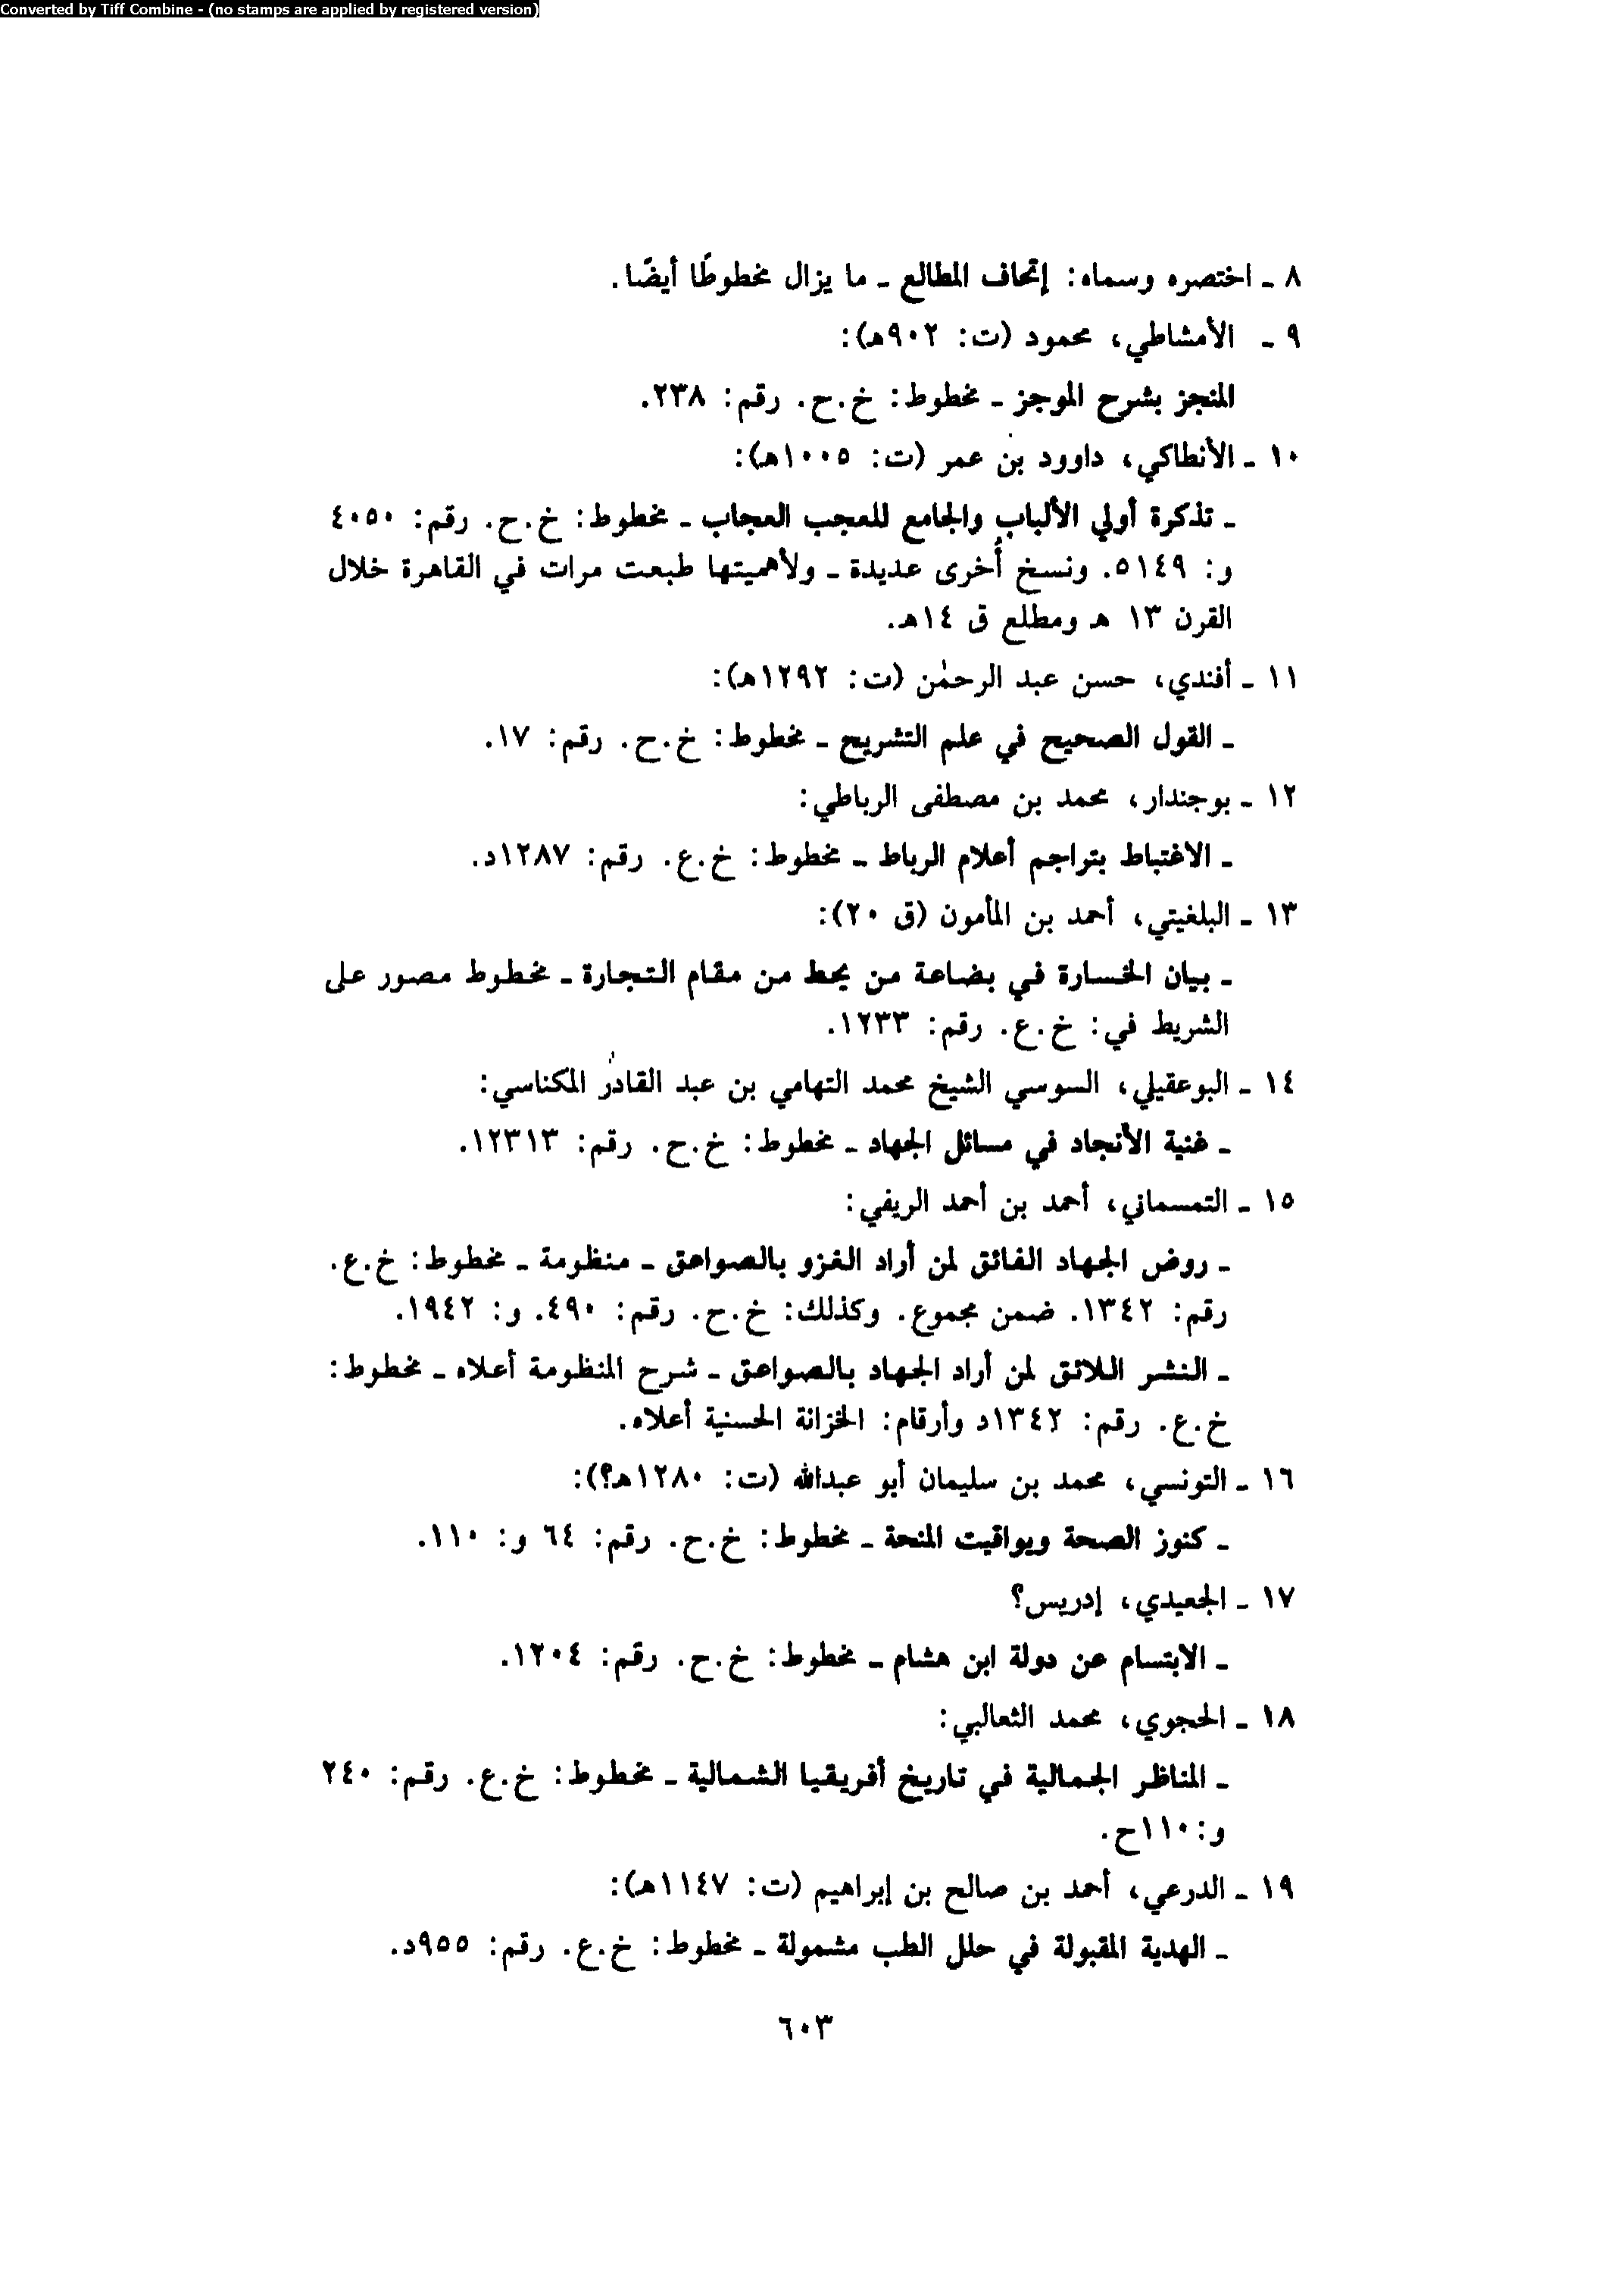 Converted by Tiff Combine - (no stamps are applied by registered version)
٨ ـ اختصره وسماه: إتحاف المطالع ـ ما يزال مخطوطًا أيضًا.
٩ ـ الأمشاطي، محمود (ت: ٩٠٢هـ):
المنجز بشرح الموجز ـ مخطوط: خ.ح. رقم: ٢٣٨.
١٠ ـ الأنطاكي، داوود بن عمر (ت: ١٠٠٥هـ):
ـ تذكرة أولي الألباب والجامع للعجب العجاب ـ مخطوط: خ.ح. رقم: ٤٠٥٠
و: ٥١٤٩. ونسخ أُخرى عديدة ـ ولأهميتها طبعت مرات في القاهرة خلال
القرن ١٣ هـ ومطلع ق ١٤هـ.
١١ ـ أفندي، حسن عبد الرحمٰن (ت: ١٢٩٢هـ):
ـ القول الصحيح في علم التشريح ـ مخطوط: خ.ح. رقم: ١٧.
١٢ ـ بوجندار، محمد بن مصطفى الرباطي:
ـ الاغتباط بتراجم أعلام الرباط ـ مخطوط: خ.ع. رقم: ١٢٨٧د.
١٣ ـ البلغيتي، أحمد بن المأمون (ق ٢٠):
ـ بيان الخسارة في بضاعة من يحط من مقام التجارة ـ مخطوط مصور على
الشريط في: خ.ع. رقم: ١٢٣٣.
١٤ ـ البوعقيلي، السوسي الشيخ محمد التهامي بن عبد القادر المكناسي:
ـ غنية الأنجاد في مسائل الجهاد ـ مخطوط: خ.ح. رقم: ١٢٣١٣.
١٥ ـ التمسماني، أحمد بن أحمد الريفي:
ـ روض الجهاد الفائق لمن أراد الغزو بالصواعق ـ منظومة ـ مخطوط: خ.ع.
رقم: ١٣٤٢. ضمن مجموع. وكذلك: خ.ح. رقم: ٤٩٠. و: ١٩٤٢.
ـ النشر اللائق لمن أراد الجهاد بالصواعق ـ شرح المنظومة أعلاه ـ مخطوط:
خ.ع. رقم: ١٣٤٢د وأرقام: الخزانة الحسنية أعلاه.
١٦ ـ التونسي، محمد بن سليمان أبو عبدالله (ت: ١٢٨٠هـ؟):
ـ كنوز الصحة ويواقيت المنحة ـ مخطوط: خ.ح. رقم: ٦٤ و: ١١٠.
١٧ ـ الجعيدي، إدريس؟
ـ الابتسام عن دولة ابن هشام ـ مخطوط: خ.ح. رقم: ١٢٠٤.
١٨ ـ الحجوي، محمد الثعالبي:
ـ المناظر الجمالية في تاريخ أفريقيا الشمالية ـ مخطوط: خ.ع. رقم: ٢٤٠
و: ١١٠ح.
١٩ ـ الدرعي، أحمد بن صالح بن إبراهيم (ت: ١١٤٧هـ):
ـ الهدية المقبولة في حلل الطب مشمولة ـ مخطوط: خ.ع. رقم: ٩٥٥د.
٦٠٣